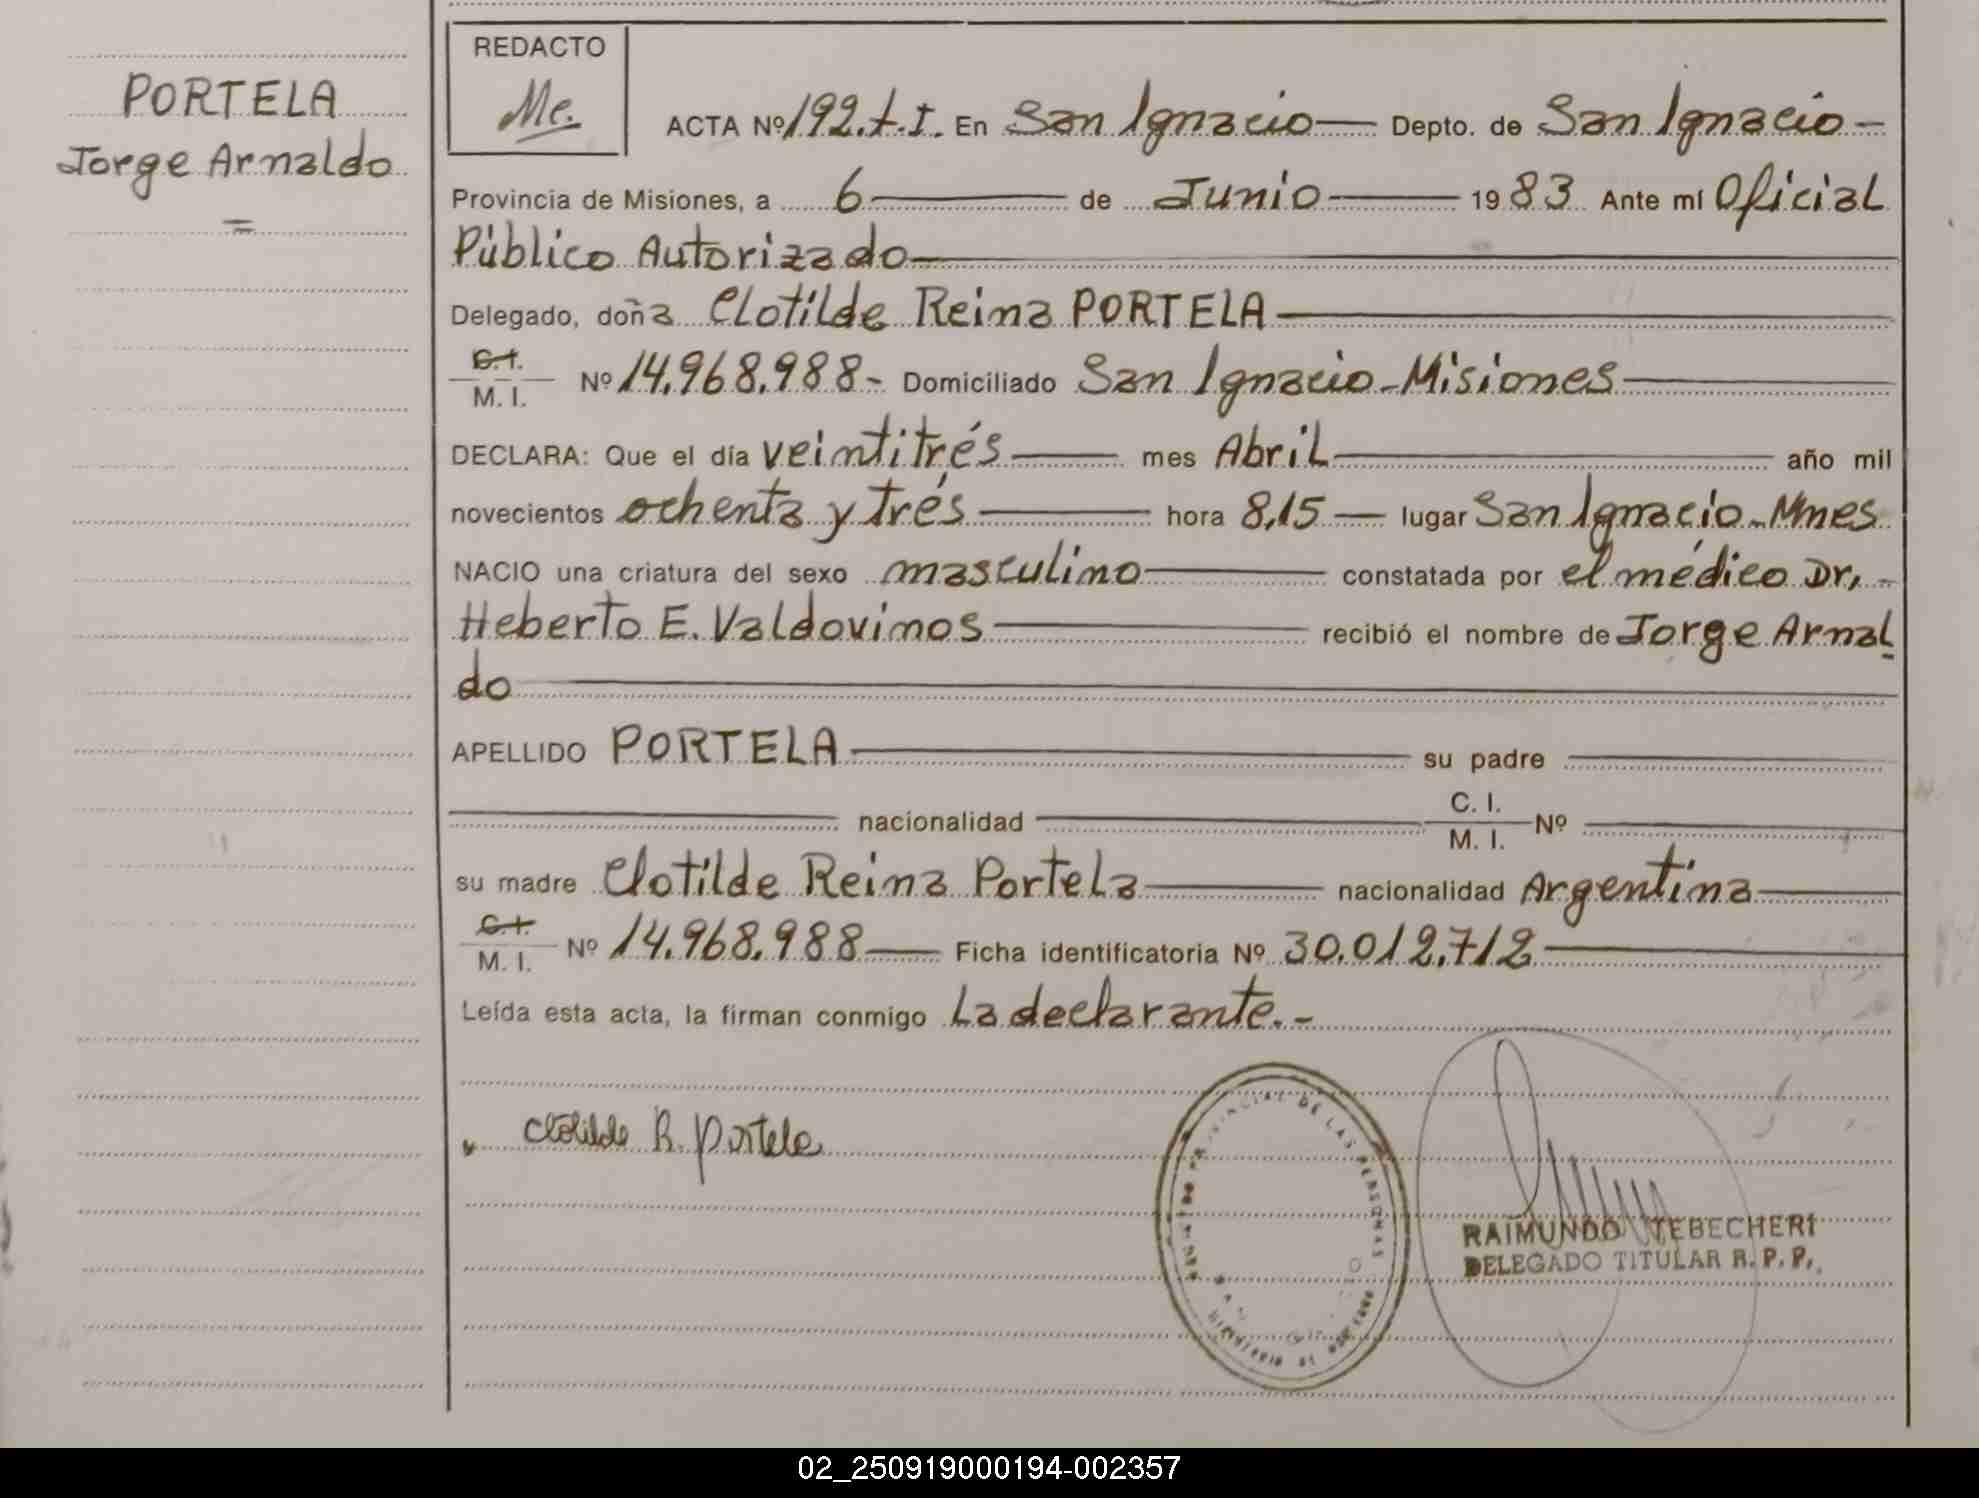 PORTELA
Jorge Arnaldo
=
REDACTO
Me.
ACTA Nº 192.t.I. En San Ignacio — Depto. de San Ignacio —
Provincia de Misiones, a 6 — de Junio — 1983 Ante mí Oficial
Público Autorizado —
Delegado, doña Clotilde Reina PORTELA —
C.I.
M. I. Nº 14.968.988- Domiciliado San Ignacio - Misiones —
DECLARA: Que el día veintitrés — mes Abril — año mil
novecientos ochenta y trés — hora 8,15 — lugar San Ignacio - Mnes
NACIO una criatura del sexo masculino — constatada por el médico Dr, -
Heberto E. Valdovinos — recibió el nombre de Jorge Arnal
do —
APELLIDO PORTELA — su padre —
— nacionalidad — C. I.
M. I. Nº —
su madre Clotilde Reina Portela — nacionalidad Argentina —
C.I.
M. I. Nº 14.968.988 — Ficha identificatoria Nº 30.012.712 —
Leída esta acta, la firman conmigo La declarante. -
Clotilde R. Portela
PROVINCIAL DE LAS PERSONAS
RAIMUNDO TEBECHERI
DELEGADO TITULAR R. P. P.
02_250919000194-002357